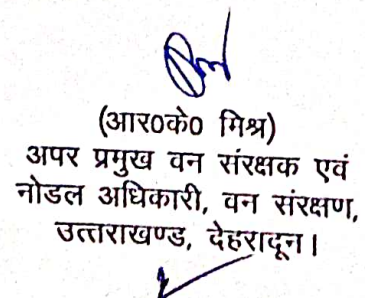 (आर०के० मिश्र)
अपर प्रमुख वन संरक्षक एवं
नोडल अधिकारी, वन संरक्षण,
उत्तराखण्ड, देहरादून।